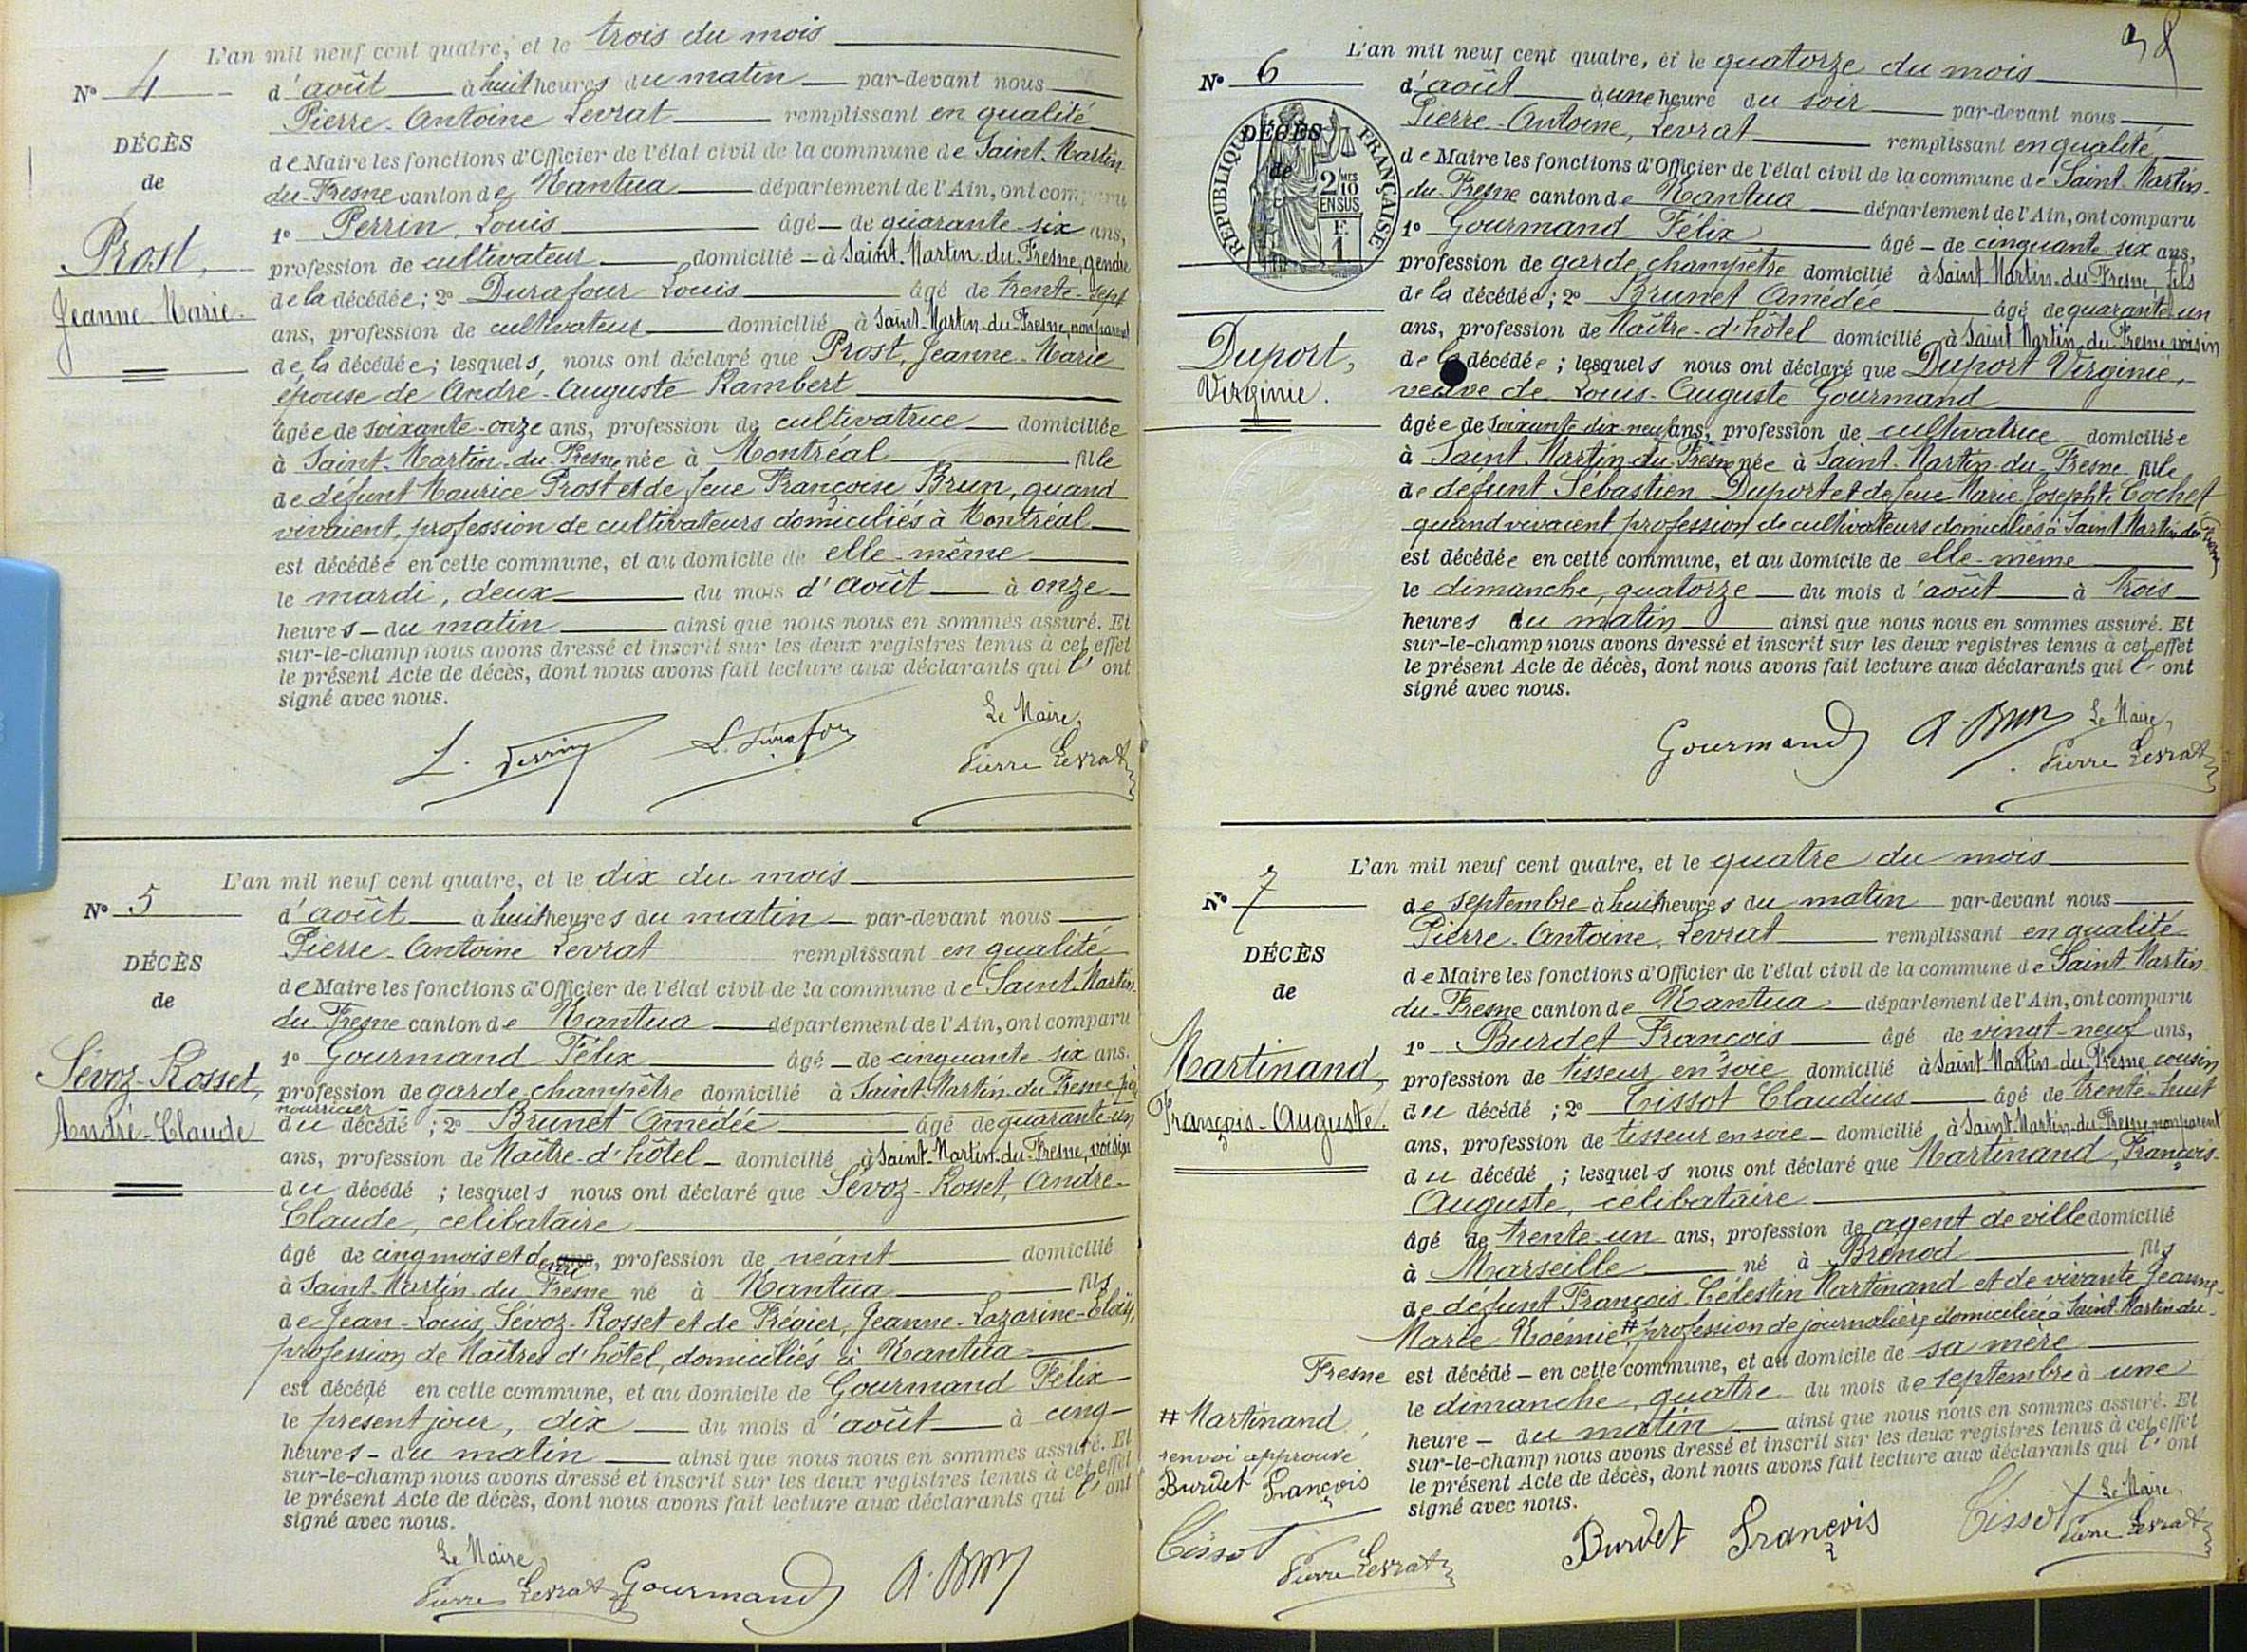 L'an mil neuf cent quatre, et le trois du mois
N° 4
d'août à huit heures du matin par-devant nous
Pierre-Antoine Levrat remplissant en qualité
DÉCÈS
de Maire les fonctions d'Officier de l'état civil de la commune de Saint-Martin-
de
du-Fresne canton de Nantua département de l'Ain, ont comparu
1° Perrin, Louis âgé de quarante-six ans,
Prost,
profession de cultivateur domicilié à Saint-Martin-du-Fresne, gendre
de la décédée; 2° Durafour Louis âgé de trente-sept
Jeanne-Marie.
ans, profession de cultivateur domicilié à Saint-Martin-du-Fresne, non parent
de la décédée; lesquels, nous ont déclaré que Prost, Jeanne-Marie
épouse de André-Auguste Rambert
âgée de soixante-onze ans, profession de cultivatrice domiciliée
à Saint-Martin-du-Fresne née à Montréal fille
de défunt Maurice Prost et de feue Françoise Brun, quand
vivaient, profession de cultivateurs domiciliés à Montréal
est décédée en cette commune, et au domicile de elle-même
le mardi, deux du mois d'août à onze
heures du matin ainsi que nous nous en sommes assuré. Et
sur-le-champ nous avons dressé et inscrit sur les deux registres tenus à cet effet
le présent Acte de décès, dont nous avons fait lecture aux déclarants qui l'ont
signé avec nous.
Le Maire,
L. Perrin L. Durafour Pierre Levrat
L'an mil neuf cent quatre, et le dix du mois
N° 5
d'août à huit heures du matin par-devant nous
Pierre-Antoine Levrat remplissant en qualité
DÉCÈS
de Maire les fonctions d'Officier de l'état civil de la commune de Saint-Martin-
de
du-Fresne canton de Nantua département de l'Ain, ont comparu
1° Gourmand Félix âgé de cinquante-six ans.
Sévoz-Rosset,
profession de garde-champêtre domicilié à Saint-Martin-du-Fresne père
nourricier
du décédé; 2° Brunet Amédée âgé de quarante-un
André-Claude
ans, profession de Maître-d'hôtel domicilié à Saint-Martin-du-Fresne, voisin
du décédé; lesquels nous ont déclaré que Sévoz-Rosset, André-
Claude, célibataire
âgé de cinq mois et demi ans, profession de néant domicilié
à Saint-Martin-du-Fresne né à Nantua fils
de Jean-Louis Sévoz-Rosset et de Frévier, Jeanne-Lazarine-Eloïse,
profession de Maîtres d'hôtel, domiciliés à Nantua
est décédé en cette commune, et au domicile de Gourmand Félix
le présent jour, dix du mois d'août à cinq
heures du matin ainsi que nous nous en sommes assuré. Et
sur-le-champ nous avons dressé et inscrit sur les deux registres tenus à cet effet
le présent Acte de décès, dont nous avons fait lecture aux déclarants qui l'ont
signé avec nous.
Le Maire,
Pierre Levrat Gourmand A. Brun
L'an mil neuf cent quatre, et le quatorze du mois
N° 6
d'août à une heure du soir par-devant nous
Pierre-Antoine, Levrat remplissant en qualité
DÉCÈS
de
RÉPUBLIQUE FRANÇAISE
2 MES
10
EN SUS
F.
1
de Maire les fonctions d'Officier de l'état civil de la commune de Saint-Martin-
du-Fresne canton de Nantua département de l'Ain, ont comparu
1° Gourmand Félix âgé de cinquante-six ans,
profession de garde-champêtre domicilié à Saint-Martin-du-Fresne, fils
de la décédée; 2° Brunet Amédée âgé de quarante-un
ans, profession de Maître-d'hôtel domicilié à Saint-Martin-du-Fresne voisin
Duport,
de la décédée; lesquels nous ont déclaré que Duport Virginie,
Virginie.
veuve de Louis-Auguste Gourmand
âgée de soixante-dix-neuf ans, profession de cultivatrice domiciliée
à Saint-Martin-du-Fresne née à Saint-Martin-du-Fresne fille
de défunt Sébastien Duport et de feue Marie-Josephte Cochet
quand vivaient, profession de cultivateurs domiciliés à Saint-Martin-du-Fresne
est décédée en cette commune, et au domicile de elle-même
le dimanche, quatorze du mois d'août à trois
heures du matin ainsi que nous nous en sommes assuré. Et
sur-le-champ nous avons dressé et inscrit sur les deux registres tenus à cet effet
le présent Acte de décès, dont nous avons fait lecture aux déclarants qui l'ont
signé avec nous.
Le Maire,
Gourmand A. Brun Pierre Levrat
L'an mil neuf cent quatre, et le quatre du mois
N° 7
de septembre à huit heures du matin par-devant nous
Pierre-Antoine, Levrat remplissant en qualité
DÉCÈS
de Maire les fonctions d'Officier de l'état civil de la commune de Saint-Martin-
de
du-Fresne canton de Nantua département de l'Ain, ont comparu
1° Burdet François âgé de vingt-neuf ans,
Martinand,
profession de tisseur en soie domicilié à Saint-Martin-du-Fresne, cousin
du décédé; 2° Tissot Claudius âgé de trente-huit
François-Auguste.
ans, profession de tisseur en soie domicilié à Saint-Martin-du-Fresne non parent
du décédé; lesquels nous ont déclaré que Martinand, François-
Auguste, célibataire
âgé de trente-un ans, profession de agent de ville domicilié
à Marseille né à Brénod fils
de défunt François-Célestin Martinand et de vivante Jeanne-
Marie Noémie # profession de journalière domiciliée à Saint-Martin-du-
Fresne est décédé en cette commune, et au domicile de sa mère
le dimanche, quatre du mois de septembre à une
# Martinand
heure du matin ainsi que nous nous en sommes assuré. Et
renvoi approuvé
sur-le-champ nous avons dressé et inscrit sur les deux registres tenus à cet effet
Burdet François
le présent Acte de décès, dont nous avons fait lecture aux déclarants qui l'ont
signé avec nous.
Le Maire,
Tissot Pierre Levrat
Burdet François Tissot Pierre Levrat